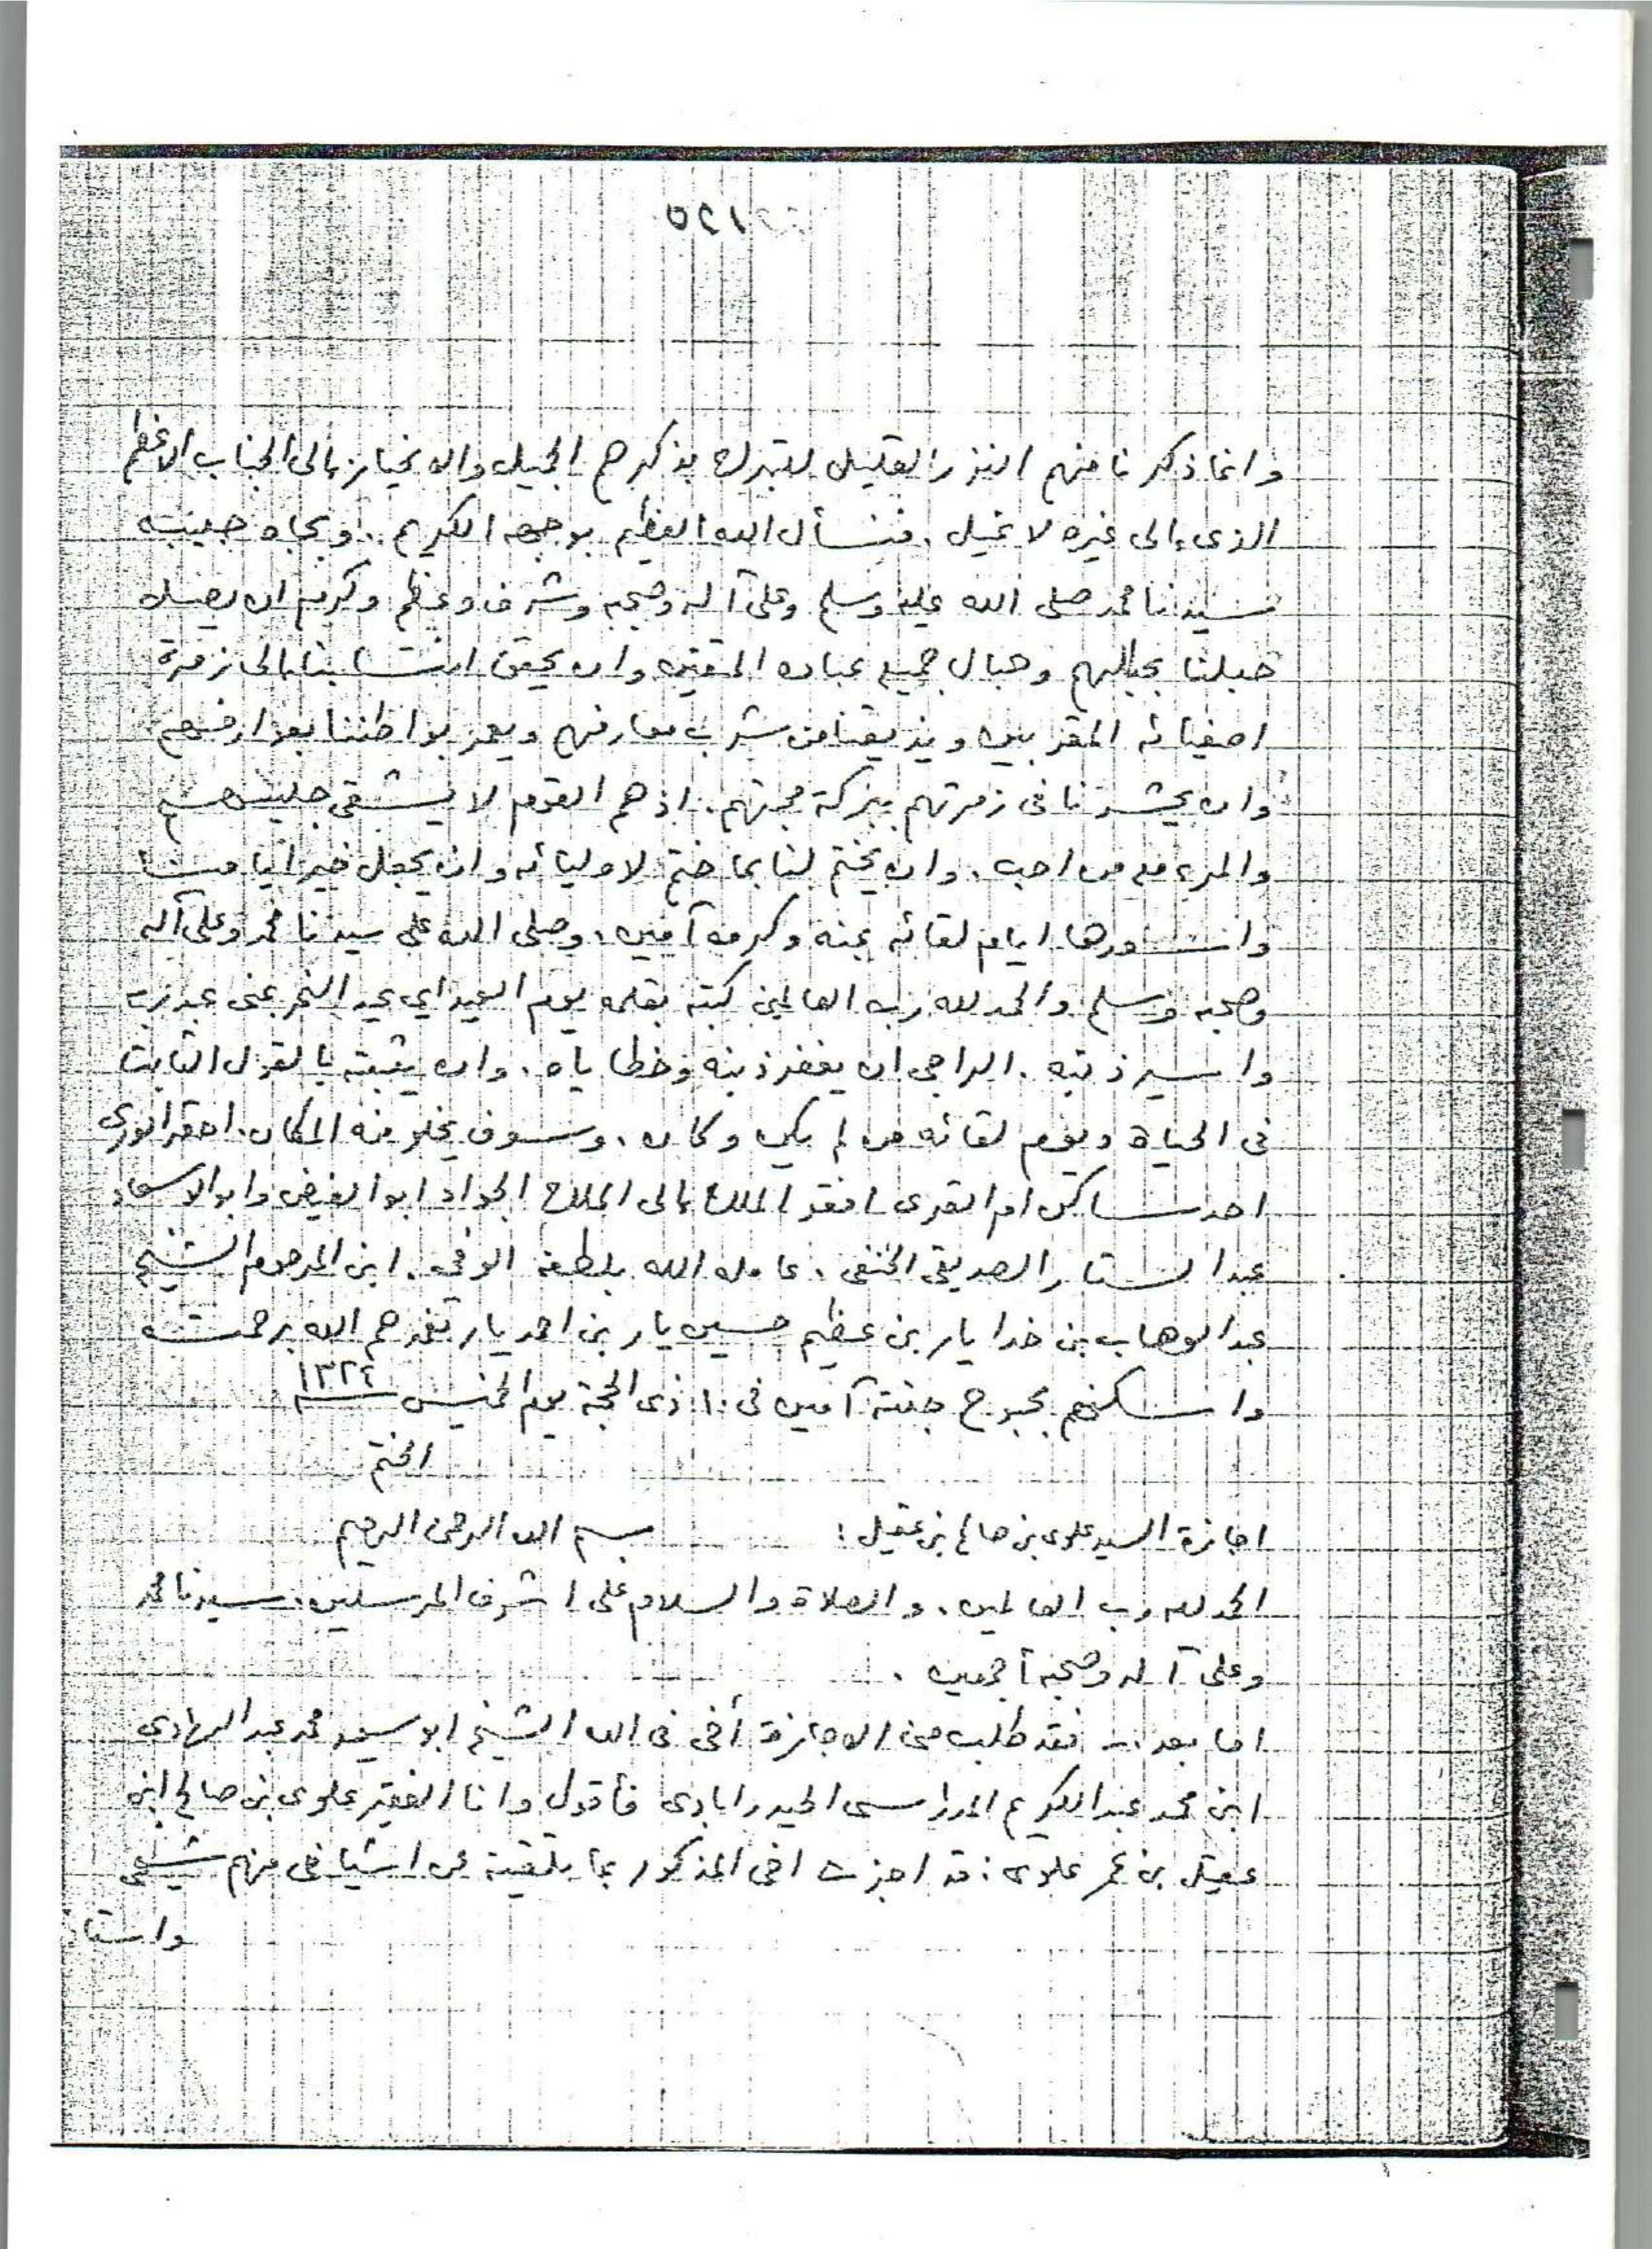 وانما ذكرنا منهم النزر القليل للتبرك بذكرهم الجميل والانحياز الى الجناب الاعظم
الذى الى غيره لا نميل . فنسأل الله العظيم بوجهه الكريم . وبجاه حبيبه
سيدنا محمد صلى الله عليه وسلم وعلى آله وصحبه وشرف وعظم وكرم ان يصل
حبلنا بحبالهم وحبال جميع عباده المتقين وان يحقق انتسابنا الى زمرة
اصفيائه المقربين ويذيقنا من شرب معارفهم ويعمر بواطننا بعوارفهم
وان يحشرنا فى زمرتهم ببركة محبتهم . اذ هم القوم لا يشقى جليسهم
والمرء مع من احب . وان يختم لنا بما ختم لاوليائه وان يجعل خير أيامنا
واسعدها ايام لقائه بمنه وكرمه آمين . وصلى الله على سيدنا محمد وعلى آله
وصحبه وسلم والحمد لله رب العالمين كتبه بقلمه يوم العيد اي عيد النحر عبد ربه
واسير ذنبه . الراجى ان يغفر ذنبه وخطاياه . وان يثبته بالقول الثابت
فى الحياة ويوم لقائه من لم يكن وكان . وسوف يخلو منه المكان . احقر الورى
احد ساكن ام القرى افقر الملاح الى الملاح الجواد ابو الفيض وابو الاسعاد
عبد الستار الصديقى الحنفى . عامله الله بلطفه الوفى . ابن المرحوم الشيخ
عبد الوهاب بن خدا يار بن عظيم حسين يار بن احمد يار تغمدهم الله برحمته
واسكنهم بحبوح جنته آمين فى ١٠ ذى الحجة يوم الخميس ١٣٢٤
الختم
اجازة السيد علوى بن صالح بن عقيل : بسم الله الرحمن الرحيم
الحمد لله رب العالمين . والصلاة والسلام على اشرف المرسلين . سيدنا محمد
وعلى آله وصحبه أجمعين .
اما بعد .. فقد طلب منى الاجازة أخى فى الله الشيخ ابو سعيد محمد عبد الهادى
ابن محمد عبد الكريم المدراسى الحيدرابادى فأقول وانا الفقير علوى بن صالح ابن
عقيل بن عمر علوى : قد اجزت اخى المذكور بما تلقيته عن اشياخى منهم شيخى
واستا